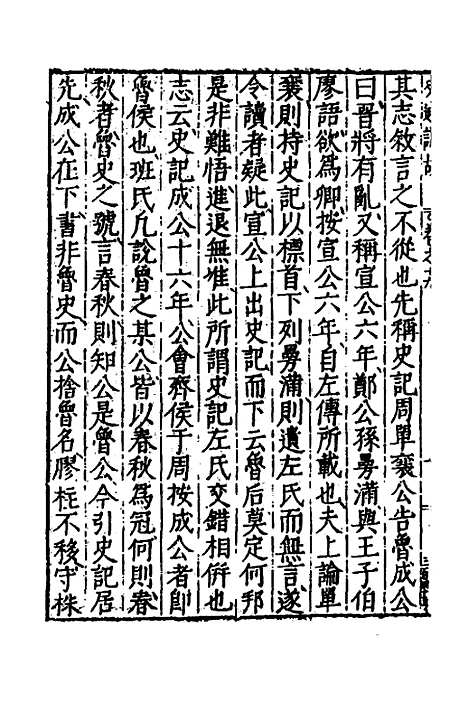 其志敘言之不從也先稱史記周單襄公告魯成公
曰晋將有亂又稱宣公六年鄭公孫曼滿與王子伯
廖語欲爲卿按宣公六年自左傳所載也夫上論單
襄則持史記以標首下列曼滿則遺左氏而無言遂
令讀者疑此宣公上出史記而下云魯后莫定何邦
是非難悟進退無准此所謂史記左氏交錯相併也
志云史記成公十六年公會齊侯于周按成公者即
魯侯也班氏凡說魯之某公皆以春秋爲冠何則春
秋者魯史之號言春秋則知公是魯公今引史記居
先成公在下書非魯史而公捨魯名膠柱不移守株